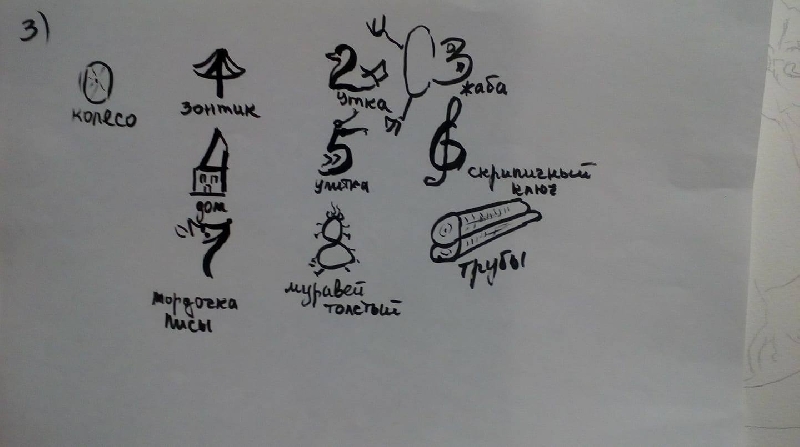 3)
колесо
зонтик
утка
жаба
дом
улитка
скрипичный
ключ
мордочка
лисы
муравей
толстый
трубы